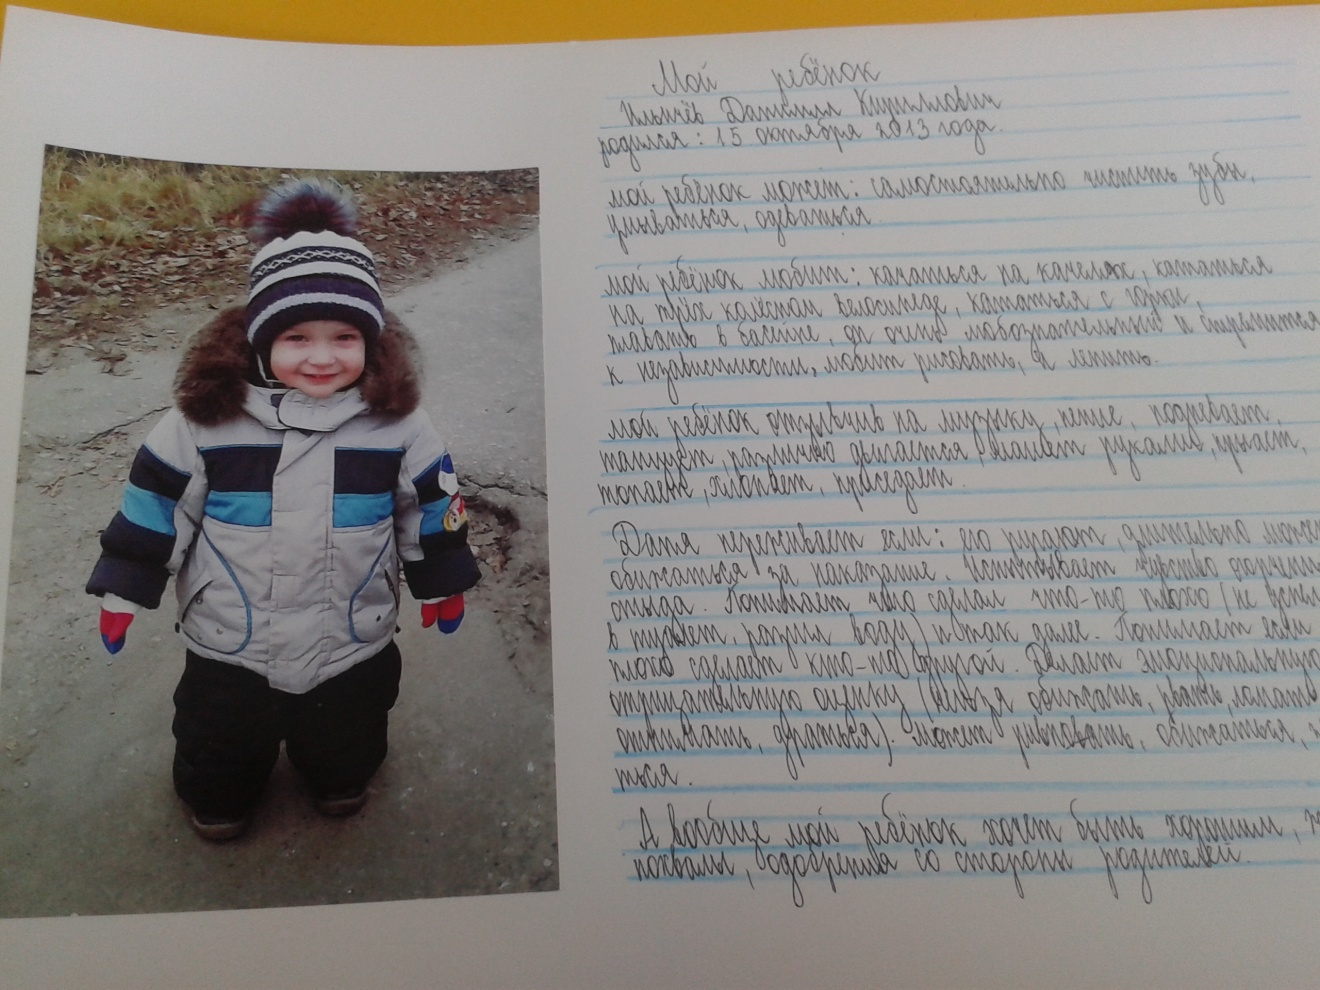 Мой ребёнок
Ильичёв Даниил Кириллович
родился: 15 октября 2013 года.
мой ребёнок может: самостоятельно чистить зубы,
умываться, одеваться.
мой ребёнок любит: качаться на качелях, кататься
на трёх колёсном велосипеде, кататься с горки,
плавать в бассейне, он очень любознательный и стремится
к независимости, любит рисовать, и лепить.
мой ребёнок отзывчив на музыку, пение, подпевает,
танцует, различно двигается, машет руками, прыгает,
топает, хлопает, приседает.
Даня переживает если: его ругают, длительно может
обижаться за наказание. Испытывает чувство огорчения
стыда. Понимает что сделал что-то плохо (не успел
в туалет, разлил воду) и так далее. Понимает если
плохо сделает кто-то другой. Делает эмоциональную
отрицательную оценку (нельзя обижать, рвать, ломать
отнимать, драться). может ревновать, обижаться,
ться.
А вообще мой ребёнок хочет быть хорошим,
похвалы, одобрения со стороны родителей.